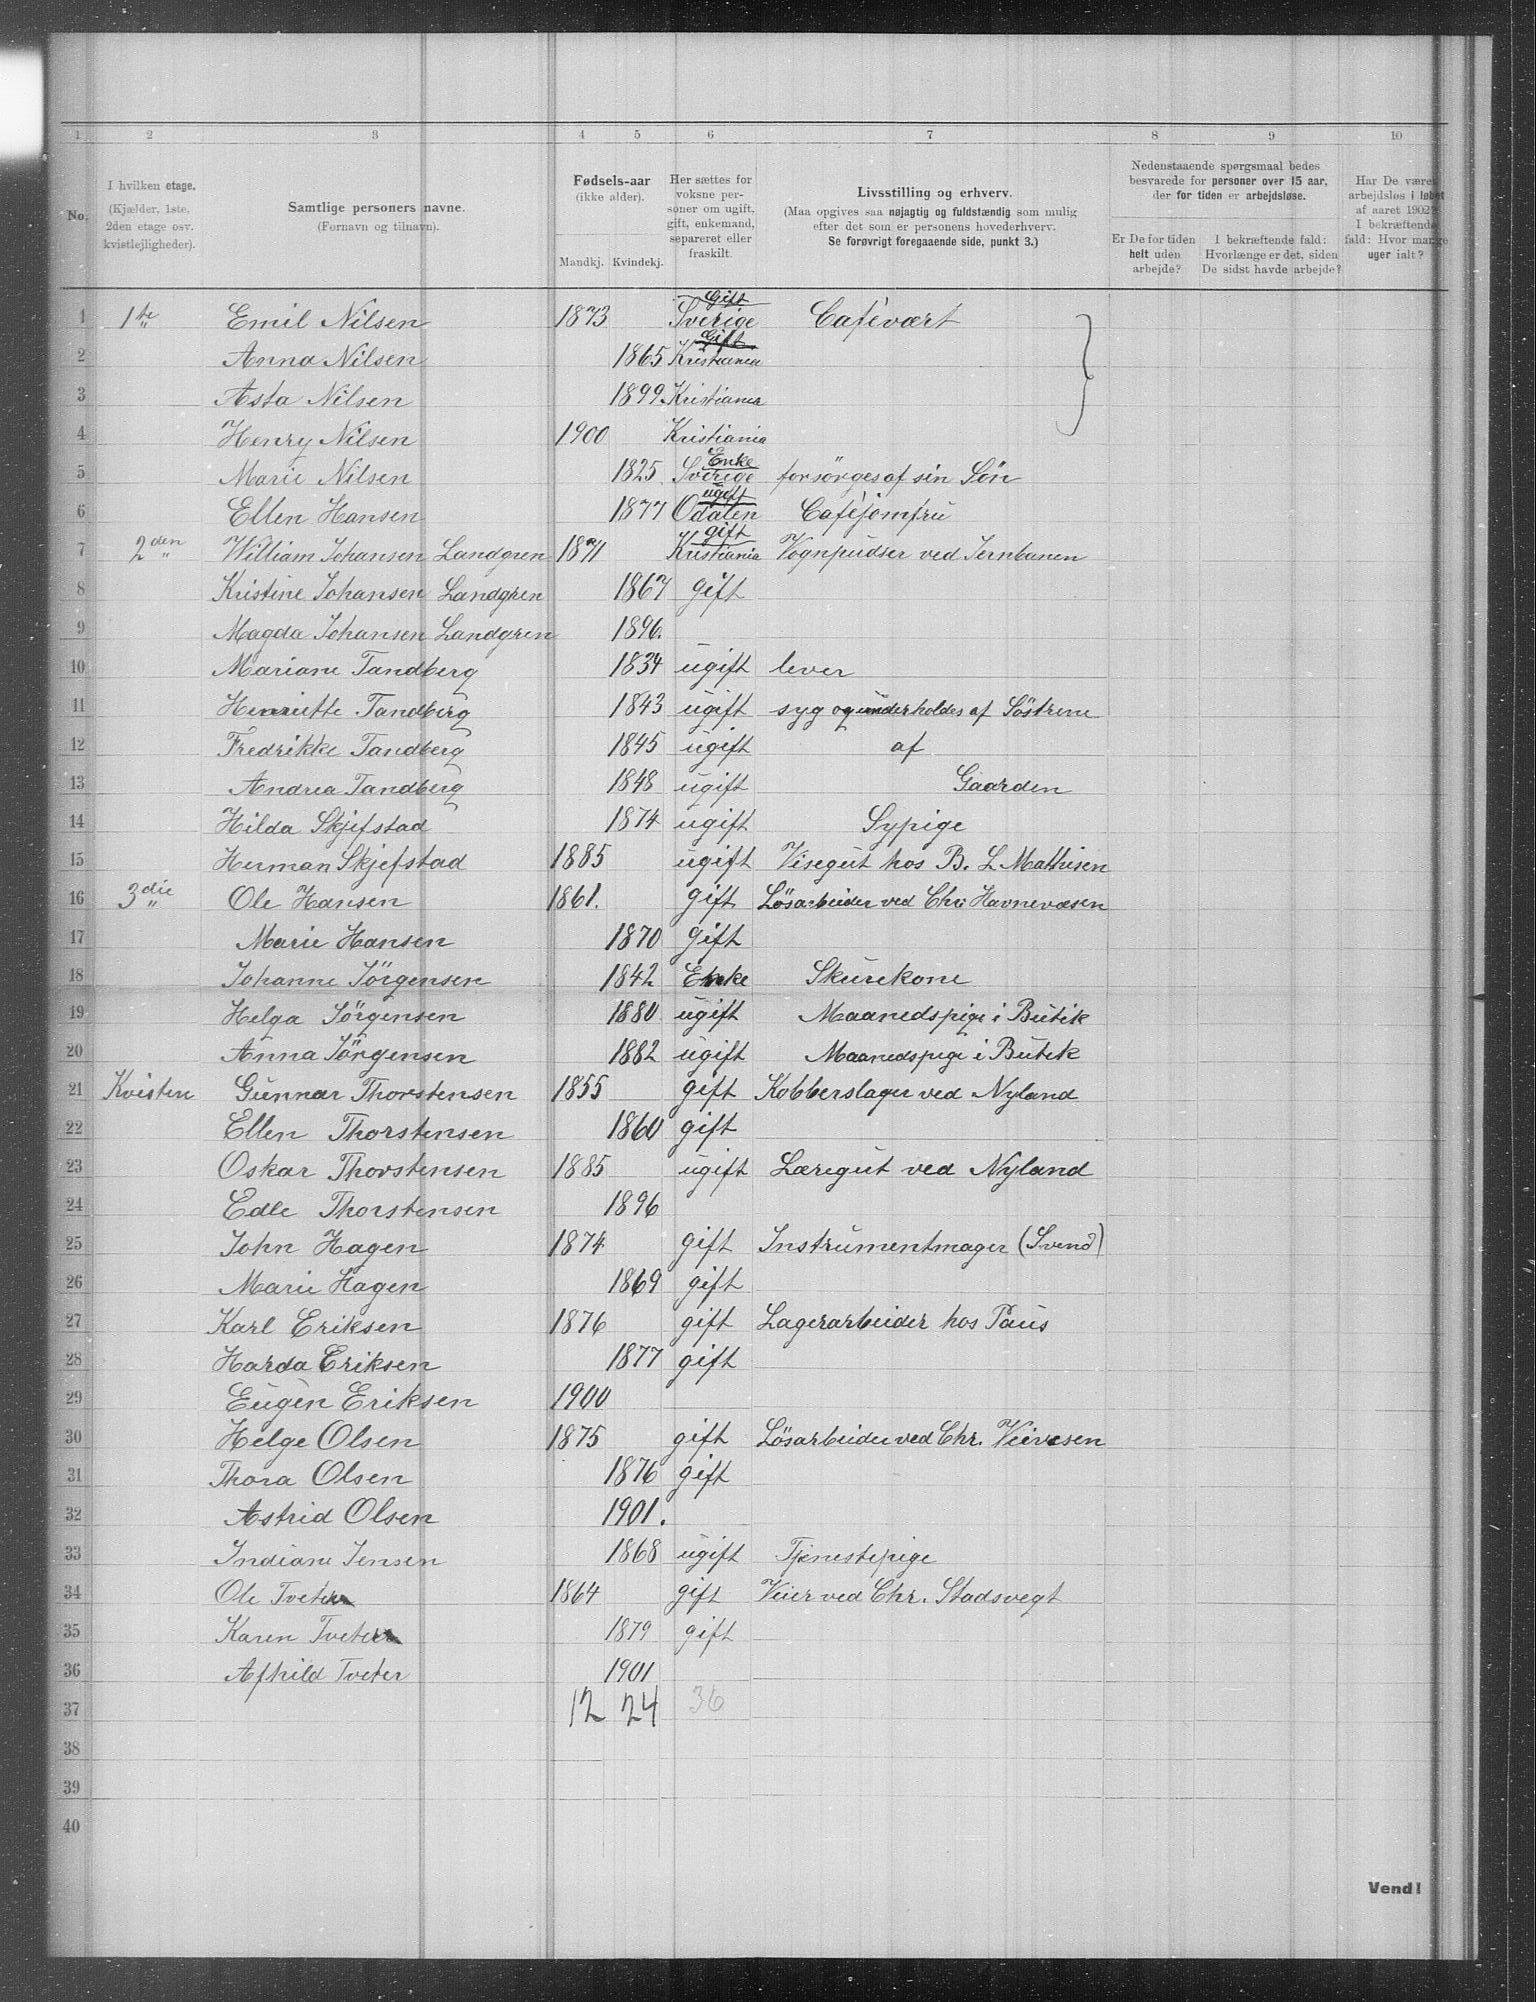 1 2 3 4 5 6 7 8 9 10
No.
I hvilken etage.
(Kjælder, 1ste,
2den etage osv.
kvistlejligheder).
Samtlige personers navne.
(Fornavn og tilnavn).
Fødsels-aar
(ikke alder).
Mandkj. Kvindekj.
Her sættes for
voksne per-
soner om ugift,
gift, enkemand,
separeret eller
fraskilt.
Livsstilling og erhverv.
(Maa opgives saa nøjagtig og fuldstændig som mulig
efter det som er personens hovederhverv.
Se forøvrigt foregaaende side, punkt 3.)
Nedenstaaende spørgsmaal bedes
besvarede for personer over 15 aar,
der for tiden er arbejdsløse.
Er De for tiden
helt uden
arbejde?
I bekræftende fald:
Hvorlænge er det, siden
De sidst havde arbejde?
Har De været
arbejdsløs i løbet
af aaret 1902?
I bekræftende
fald: Hvor mange
uger ialt?
1 1te Emil Nilsen 1873 Gift Sverige Cafévært
2 Anna Nilsen 1865 Gift Kristiania
3 Asta Nilsen 1899 Kristiania
4 Henry Nilsen 1900 Kristiania
5 Marie Nilsen 1825 Enke Sverige forsörges af sin Sön
6 Ellen Hansen 1877 ugift Odalen Caféjomfru
7 2den William Johansen Landgren 1871 gift Kristiania Vognpudser ved Jernbanen
8 Kristine Johansen Landgren 1867 gift
9 Magda Johansen Landgren 1896.
10 Mariane Tandberg 1834 ugift lever
11 Henriette Tandberg 1843 ugift syg og underholdes af Söstrene
12 Fredrikke Tandberg 1845 ugift af
13 Andrea Tandberg 1848 ugift Gaarden
14 Hilda Skjefstad 1874 ugift Sypige
15 Herman Skjefstad 1885 ugift Visegut hos B. L. Mathisen
16 3die Ole Hansen 1861. gift Lösarbeider ved Chr. Havnevæsen
17 Marie Hansen 1870 gift
18 Johanne Jörgensen 1842 Enke Skurekone
19 Helga Jörgensen 1880 ugift Maanedspige i Butik
20 Anna Jörgensen 1882 ugift Maanedspige i Butik
21 Kvisten Gunnar Thorstensen 1855 gift Kobberslager ved Nyland
22 Ellen Thorstensen 1860 gift
23 Oskar Thorstensen 1885 ugift Læregut ved Nyland
24 Edle Thorstensen 1896
25 John Hagen 1874 gift Instrumentmager (Svend)
26 Marie Hagen 1869 gift
27 Karl Eriksen 1876 gift Lagerarbeider hos Paus
28 Harda Eriksen 1877 gift
29 Eugen Eriksen 1900
30 Helge Olsen 1875 gift Lösarbeider ved Chr. Veivesen
31 Thora Olsen 1876 gift
32 Astrid Olsen 1901.
33 Indiane Jensen 1868 ugift Tjenestepige
34 Ole Tveter 1864 gift Veier ved Chr. Stadsvegt
35 Karen Tveter 1879 gift
36 Afhild Tveter 1901
37 12 24 36
38
39
40
Vend!